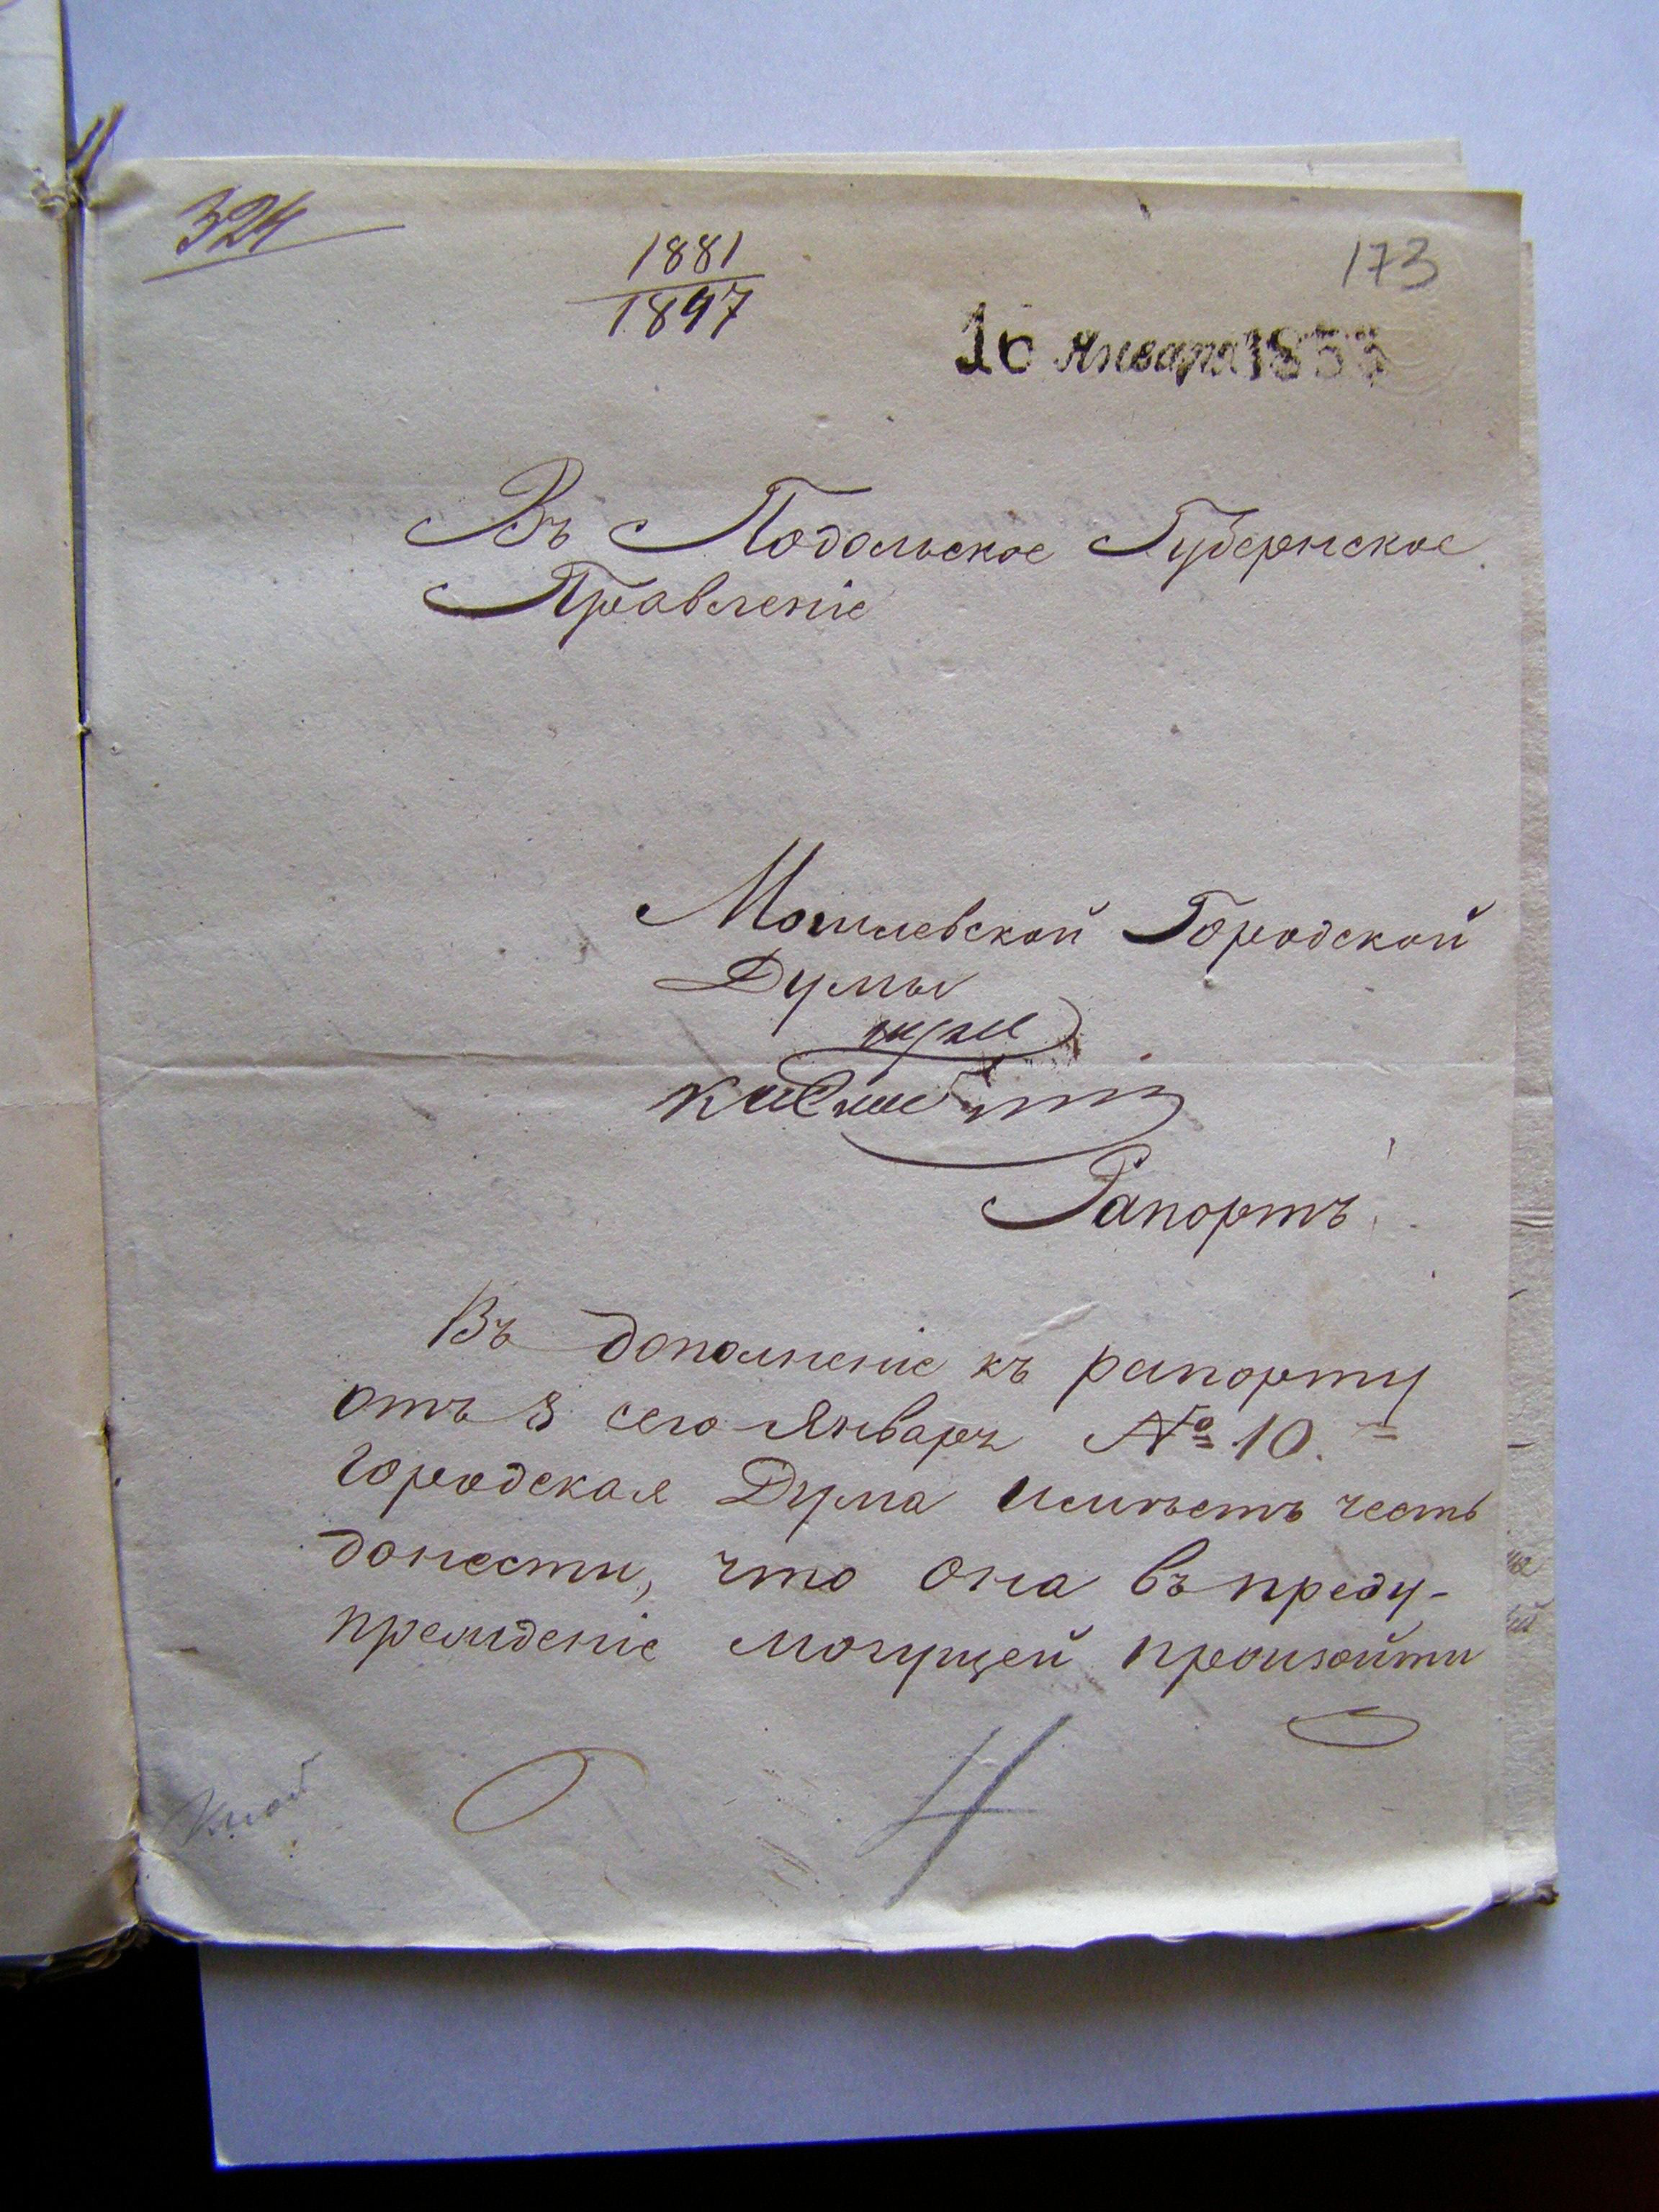 324
1881
1897
173
16 января 185
Въ Подольское Губернское
Правленіе
Могилевской Городской
Думы
Рапортъ
Въ дополненіе къ рапорту
отъ 8 сего Января № 10.
Городская Дума имѣетъ честь
донести, что она въ преду-
прежденіе могущей произойти